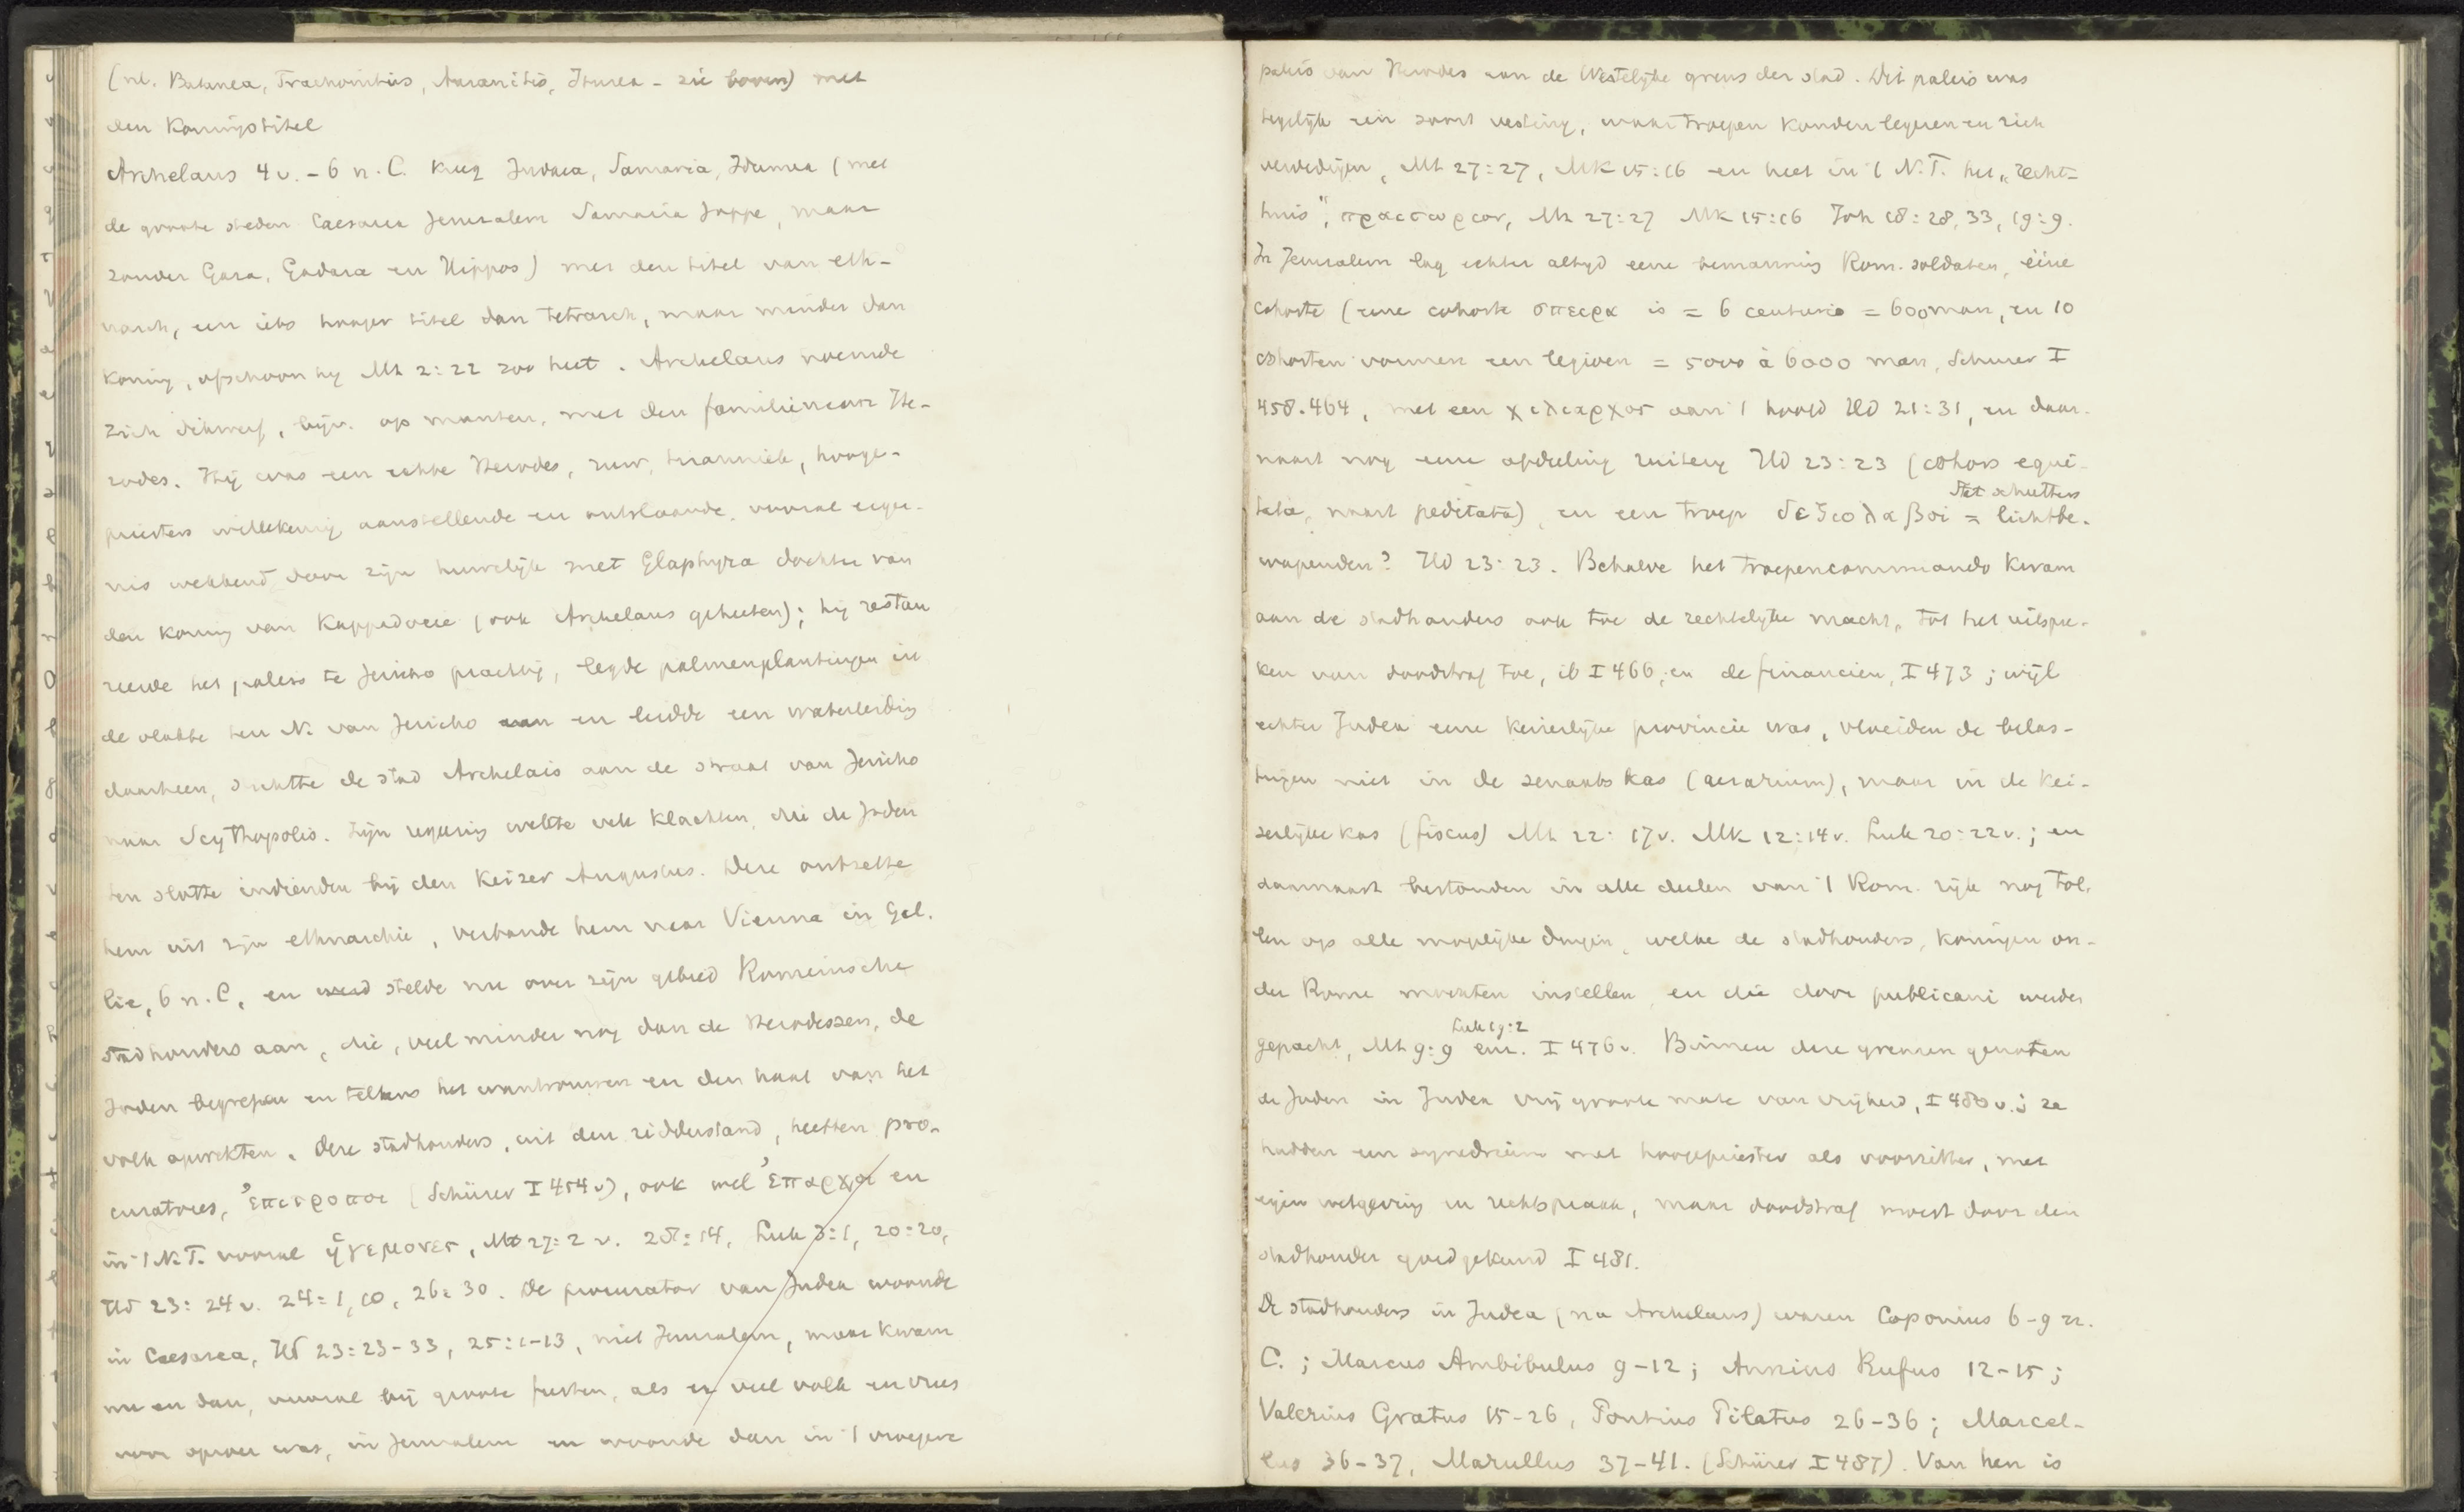 (nl. Batanea, Trachonitis, Auranitis, Iturea - zie boven) met
den Koningstitel
Archelaus 4 v. - 6 n. C. kreeg Judaea, Samaria, Idumea (met
de groote steden Caesarea Jerusalem Samaria Joppe, maar
zonder Gaza, Gadara en Hippos) met den titel van eth-
narch, een iets hooger titel dan tetrarch, maar minder dan
koning, ofschoon hij Mt 2:22 zoo heet. Archelaus noemde
zich ook, bijv. op munten, met den familienaam He-
rodes. Hij was een echte Herodes, ruw, tirannick, hooge-
priesters willekeurig aanstellende en ontslaande, vooral erger-
nis wekkend door zijn huwelijk met Glaphyra dochter van
den koning van Kappadocie (ook Archelaus geheeten); hij restau
reerde het paleis te Jericho prachtig, legde palmenplantingen in
de vlakte ten N. van Jericho aan en leidde een waterleiding
daarheen, stichtte de stad Archelais aan de straat van Jericho
naar Scythopolis. Zijn regeering wekte vele klachten, die de Joden
ten slotte indienden bij den Keizer Augustus. Deze ontzette
hem uit zijn ethnarchie, verbande hem naar Vienna in Gal.
lie, 6 n. C, en stelde nu over zijn gebied Romeinsche
stadhouders aan, die, veel minder nog dan de Herodessen, de
Joden begrepen en telkens het wantrouwen en den haat van het
volk opwekten. Deze stadhouders, uit den ridderstand, heetten pro-
curatores, ἐπιτροποι (Schürer I 454 v), ook wel ἐπαρχοι en
in 't N.T. vooral ἡγεμονες, Mt 27:2 v. 28:14, Luk 3:1, 20:20,
Hd 23:24 v. 24:1, 10, 26:30. De procurator van Judea woonde
in Caesarea, Hd 23:23-33, 25:1-13, niet Jerusalem, maar kwam
nu en dan, vooral bij groote feesten, als er veel volk en vrees
voor oproer was, in Jerusalem en woonde dan in 't vroegere
paleis van Herodes aan de Westelijke grens der stad. Dit paleis was
tegelijk een soort vesting, waar troepen konden legeren en zich
verdedigen, Mt 27:27, Mk 15:16 en heet in 't N.T. het „recht-
huis", πραιτωριον, Mt 27:27 Mk 15:16 Joh 18:28, 33, 19:9.
In Jerusalem lag echter altyd eene bemanning Rom. soldaten, éène
cohorte (eene cohorte σπειρα is = 6 centurie = 600 man, en 10
cohorten vormen een legioen = 5000 à 6000 man, Schurer I
458.464, met een χιλιαρχος aan 't hoofd Hd 21:31, en daar-
naast nog eene afdeeling ruitery Hd 23:23 (cohors equi-
tata, naast peditata), en een troep δεξιολαβοι = lichtbe-
schutters
wapenden? Hd 23:23. Behalve het troepencommando kwam
aan de stadhouders ook toe de rechtelijke macht, tot het uitspre-
ken van doodstraf toe, ib I 466, en de financien, I 473; wijl
echter Judea eene keizerlijke provincie was, vloeiden de belas-
tingen niet in de senaats kas (aerarium), maar in de kei-
zerlijke kas (fiscus) Mt 22:17 v. Mk 12:14 v. Luk 20:22 v.; en
daarnaast bestonden in alle deelen van 't Rom. rijk nog tol-
len op alle mogelijke dingen, welke de stadhouders, koningen on-
der Rome mochten instellen en die door publicani werden
Luk 19:2
gepacht, Mt 9:9 enz. I 476 v. Binnen deze grenzen genoten
de Joden in Judea vrij groote mate van vrijheid, I 480 v.; ze
hadden een synedrium met hoogepriester als voorzitter, met
eigen wetgeving en rechtspraak, maar doodstraf moest door den
stadhouder goedgekeurd I 481.
De stadhouders in Judea (na Archelaus) waren Coponius 6-9 n.
C.; Marcus Ambibulus 9-12; Annius Rufus 12-15;
Valerius Gratus 15-26, Pontius Pilatus 26-36; Marcel-
lus 36-37, Marullus 37-41. (Schürer I 487). Van hen is